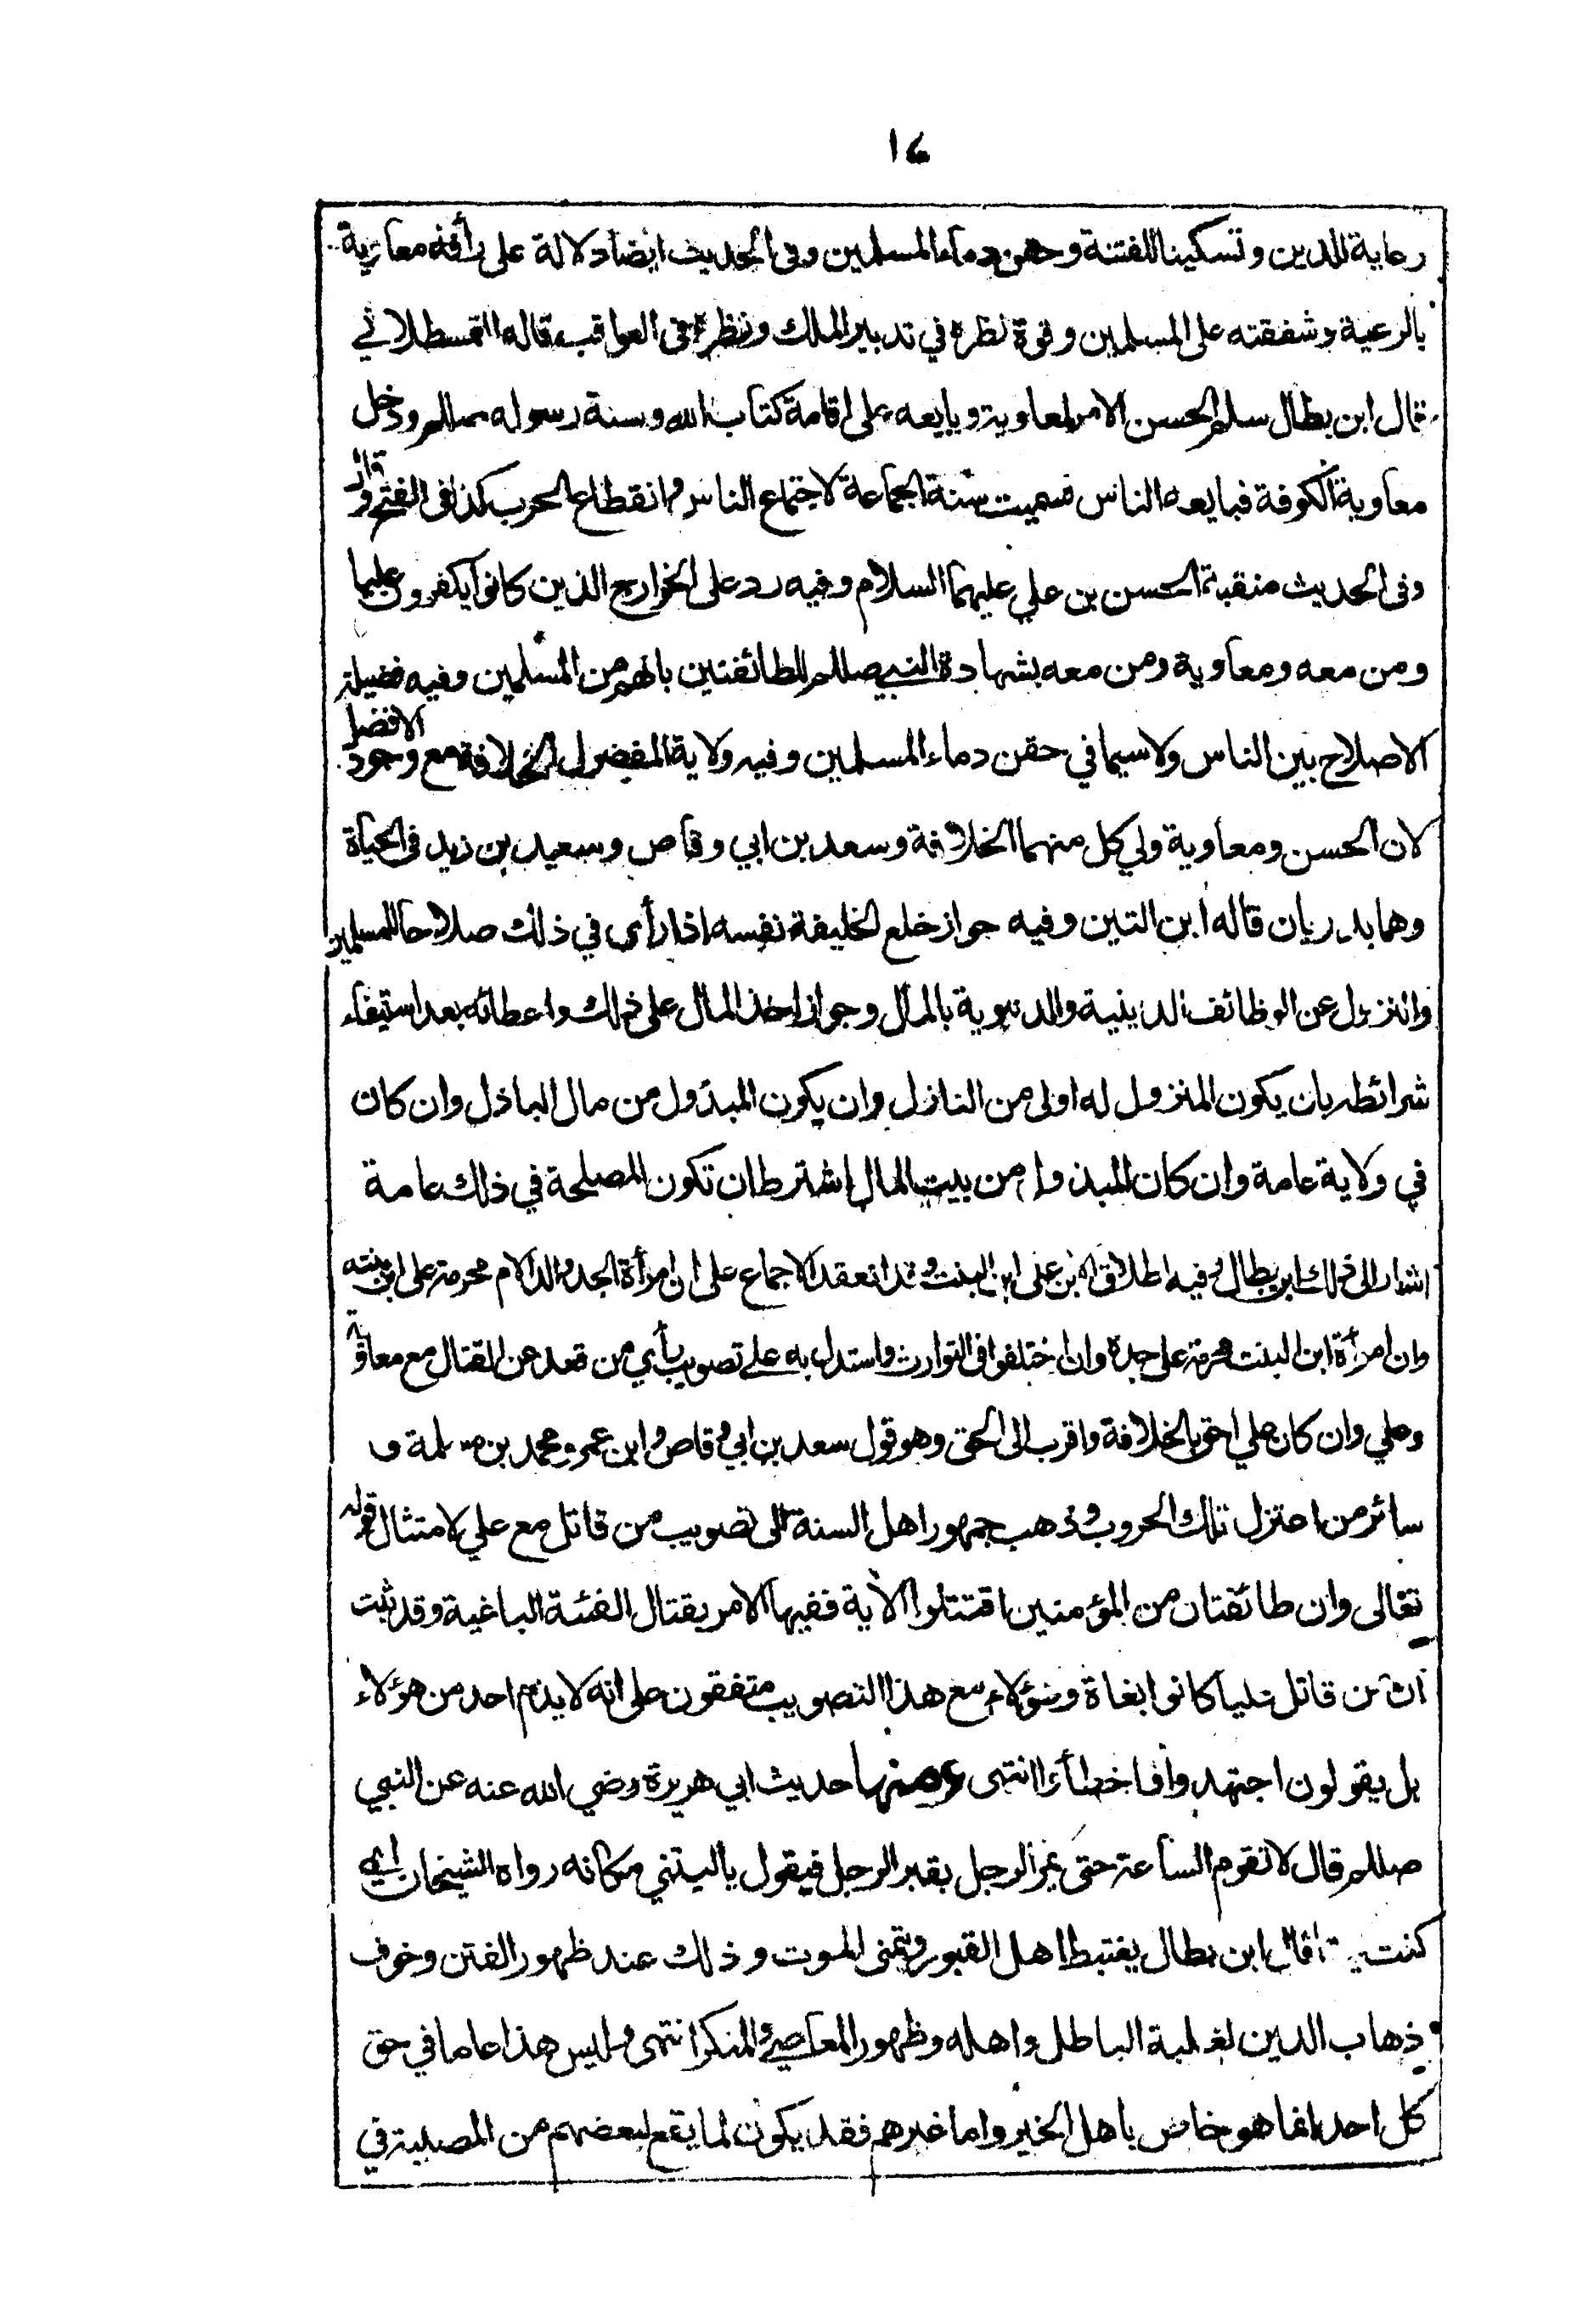 ١٤
رعاية للدين وتسكينا للفتنة وحقن دماء المسلمين وفي الحديث ايضا دلالة على رأفة معاوية
بالرعية وشفقته على المسلمين وقوة نظره في تدبير الملك ونظره في العواقب قاله القسطلاني
قال ابن بطال سلم الحسن الامر لمعاوية وبايعه على اقامة كتاب الله وسنة رسوله صللم ودخل
معاوية الكوفة فبايعه الناس فسميت سنة الجماعة لاجتماع الناس وانقطاع الحرب كذا في الفتح وقال
وفي الحديث منقبة الحسن بن علي عليهما السلام وفيه رد على الخوارج الذين كانوا يكفرون عليا
ومن معه ومعاوية ومن معه بشهادة النبي صللم للطائفتين بانهم من المسلمين وفيه فضيلة
الاصلاح بين الناس ولا سيما في حقن دماء المسلمين وفيه ولاية المفضول الخلافة مع وجود الافضل
لان الحسن ومعاوية ولي كل منهما الخلافة وسعد بن ابي وقاص وسعيد بن زيد في الحياة
وهما بدريان قاله ابن التين وفيه جواز خلع الخليفة نفسه اذا رأى في ذلك صلاحا للمسلمين
والنزول عن الوظائف الدينية والدنيوية بالمال وجواز اخذ المال على ذلك واعطائه بعد استيفاء
شرائطه بان يكون المنزول له اولى من النازل وان يكون المبذول من مال الباذل وان كان
في ولاية عامة وان كان المبذول من بيت المال اشترط ان تكون المصلحة في ذلك عامة
اشار الى ذلك ابن بطال وفيه اطلاق الابن على ابن البنت وقد انعقد الاجماع على ان امرأة الجد والد الام محرمة على ابن بنته
وان امرأة ابن البنت محرمة على جده وان اختلفوا في التوارث واستدل به على تصويب رأي من قعد عن القتال مع معاوية
وعلي وان كان علي احق بالخلافة واقرب الى الحق وهو قول سعد بن ابي وقاص وابن عمر ومحمد بن مسلمة و
سائر من اعتزل تلك الحروب وذهب جمهور اهل السنة الى تصويب من قاتل مع علي لامتثال قوله
تعالى وان طائفتان من المؤمنين اقتتلوا الآية ففيها الامر بقتال الفئة الباغية وقد ثبت
ان من قاتل عليا كانوا بغاة وهؤلاء مع هذا التصويب متفقون على انه لا يذم احد من هؤلاء
بل يقولون اجتهدوا فاخطأوا انتهى ومنها حديث ابي هريرة رضي الله عنه عن النبي
صللم قال لا تقوم الساعة حتى يمر الرجل بقبر الرجل فيقول يا ليتني مكانه رواه الشيخان اي
كنت ميتا قال ابن بطال يغتبط اهل القبور ويتمنى الموت وذلك عند ظهور الفتن وخوف
ذهاب الدين لغلبة الباطل واهله وظهور المعاصي والمنكر انتهى وليس هذا عاما في حق
كل احد وانما هو خاص باهل الخير واما غيرهم فقد يكون لما يقع لبعضهم من المصيبة في